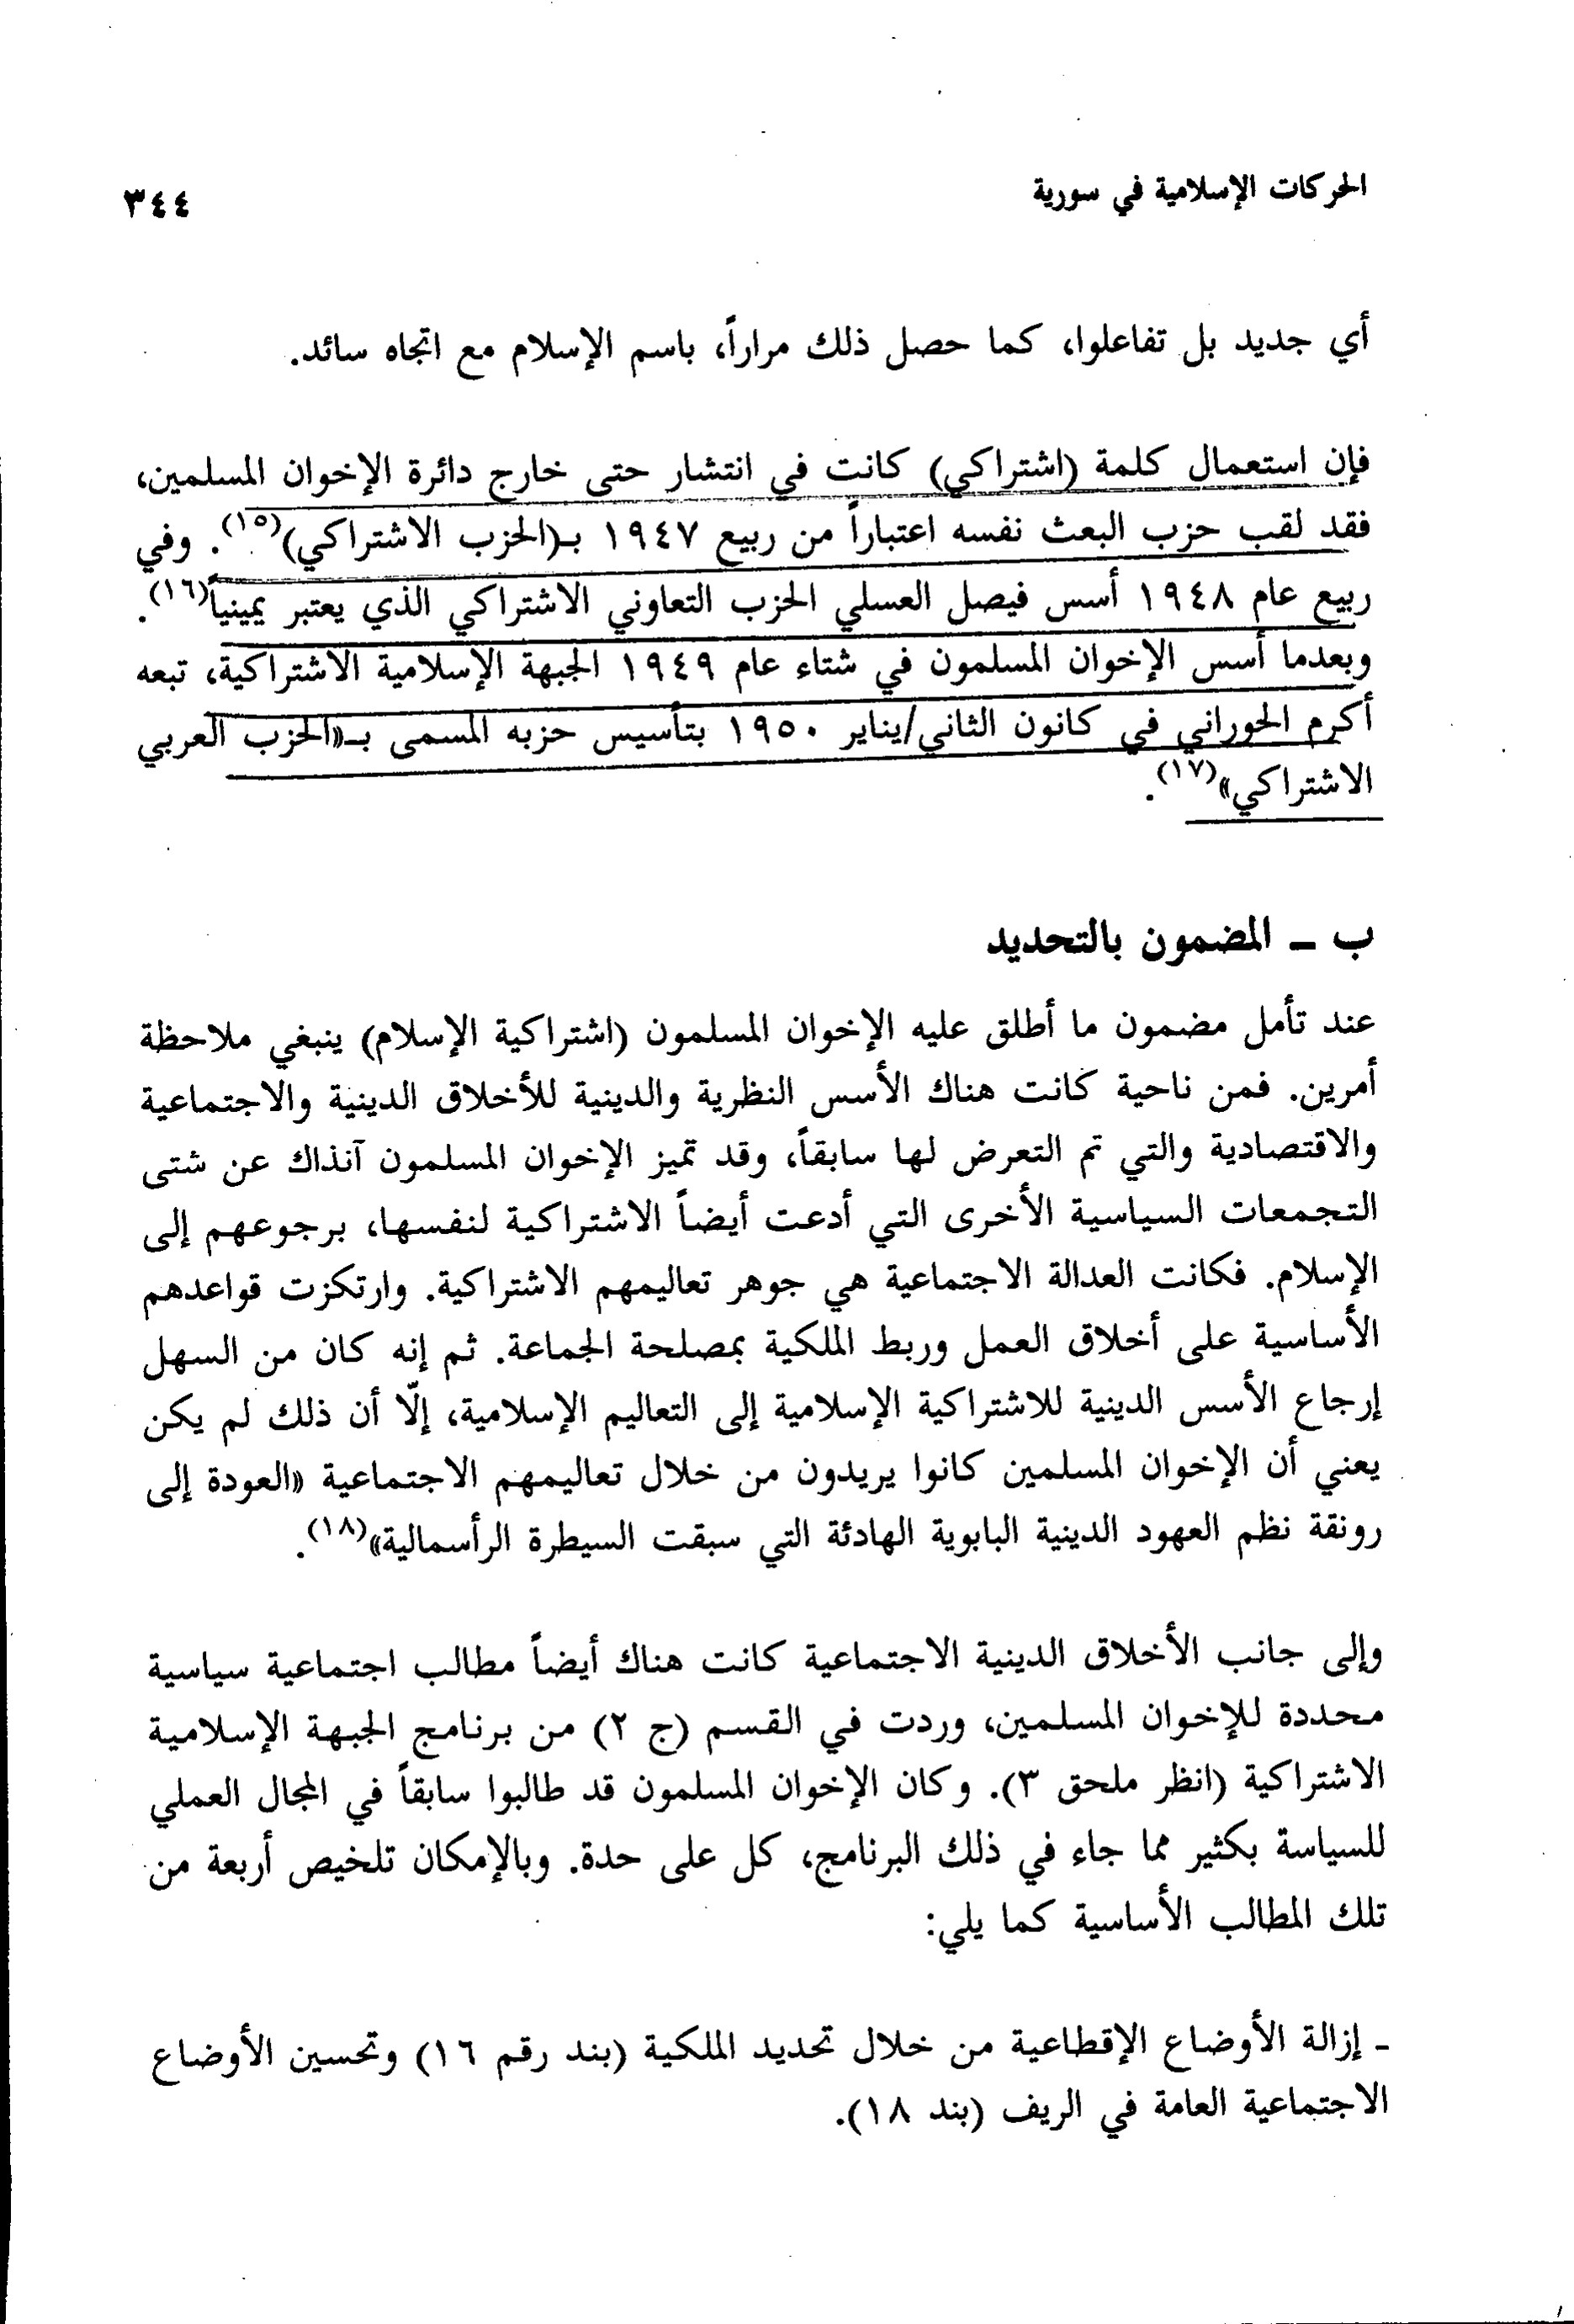 الحركات الإسلامية في سورية
٣٤٤
أي جديد بل تفاعلوا، كما حصل ذلك مراراً، باسم الإسلام مع اتجاه سائد.
فإن استعمال كلمة (اشتراكي) كانت في انتشار حتى خارج دائرة الإخوان المسلمين،
فقد لقب حزب البعث نفسه اعتباراً من ربيع ١٩٤٧ بـ(الحزب الاشتراكي)(١٥). وفي
ربيع عام ١٩٤٨ أسس فيصل العسلي الحزب التعاوني الاشتراكي الذي يعتبر يمينياً(١٦).
وبعدما أسس الإخوان المسلمون في شتاء عام ١٩٤٩ الجبهة الإسلامية الاشتراكية، تبعه
أكرم الحوراني في كانون الثاني/يناير ١٩٥٠ بتأسيس حزبه المسمى بـ«الحزب العربي
الاشتراكي»(١٧).
ب - المضمون بالتحديد
عند تأمل مضمون ما أطلق عليه الإخوان المسلمون (اشتراكية الإسلام) ينبغي ملاحظة
أمرين. فمن ناحية كانت هناك الأسس النظرية والدينية للأخلاق الدينية والاجتماعية
والاقتصادية والتي تم التعرض لها سابقاً، وقد تميز الإخوان المسلمون آنذاك عن شتى
التجمعات السياسية الأخرى التي أدعت أيضاً الاشتراكية لنفسها، برجوعهم إلى
الإسلام. فكانت العدالة الاجتماعية هي جوهر تعاليمهم الاشتراكية. وارتكزت قواعدهم
الأساسية على أخلاق العمل وربط الملكية بمصلحة الجماعة. ثم إنه كان من السهل
إرجاع الأسس الدينية للاشتراكية الإسلامية إلى التعاليم الإسلامية، إلّا أن ذلك لم يكن
يعني أن الإخوان المسلمين كانوا يريدون من خلال تعاليمهم الاجتماعية «العودة إلى
رونقة نظم العهود الدينية البابوية الهادئة التي سبقت السيطرة الرأسمالية»(١٨).
وإلى جانب الأخلاق الدينية الاجتماعية كانت هناك أيضاً مطالب اجتماعية سياسية
محددة للإخوان المسلمين، وردت في القسم (ج ٢) من برنامج الجبهة الإسلامية
الاشتراكية (انظر ملحق ٣). وكان الإخوان المسلمون قد طالبوا سابقاً في المجال العملي
للسياسة بكثير مما جاء في ذلك البرنامج، كل على حدة. وبالإمكان تلخيص أربعة من
تلك المطالب الأساسية كما يلي:
- إزالة الأوضاع الإقطاعية من خلال تحديد الملكية (بند رقم ١٦) وتحسين الأوضاع
الاجتماعية العامة في الريف (بند ١٨).